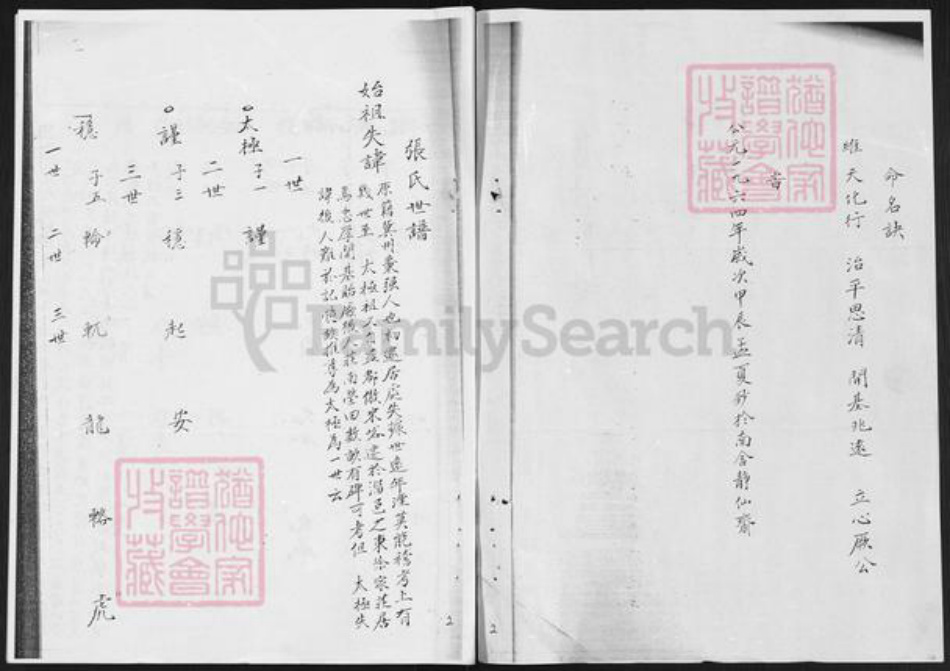 命名訣
唯天化行 治平思清 開基兆遠 立心厥公
公元一九六四年歲次甲辰孟夏抄於南舍靜仙齋
猶他家譜學會收藏
2
張氏世譜
始祖失諱
原籍冀州棗強人也初遷居處失據世遠年湮莫能稽考上有
幾世至 太極祖人 遷於 邑之東 家莊居
為忠厚開基貽 後人 莊南塋田數畝有碑可考但 太極失
諱後人 記 推尊為太極為一世云
一世
太極 子一 謹
二世
謹 子三 穩 起 安
三世
穩 子五 輪 軏 龍 裕 虎
一世 二世 三世
猶他家譜學會收藏
2
FamilySearch